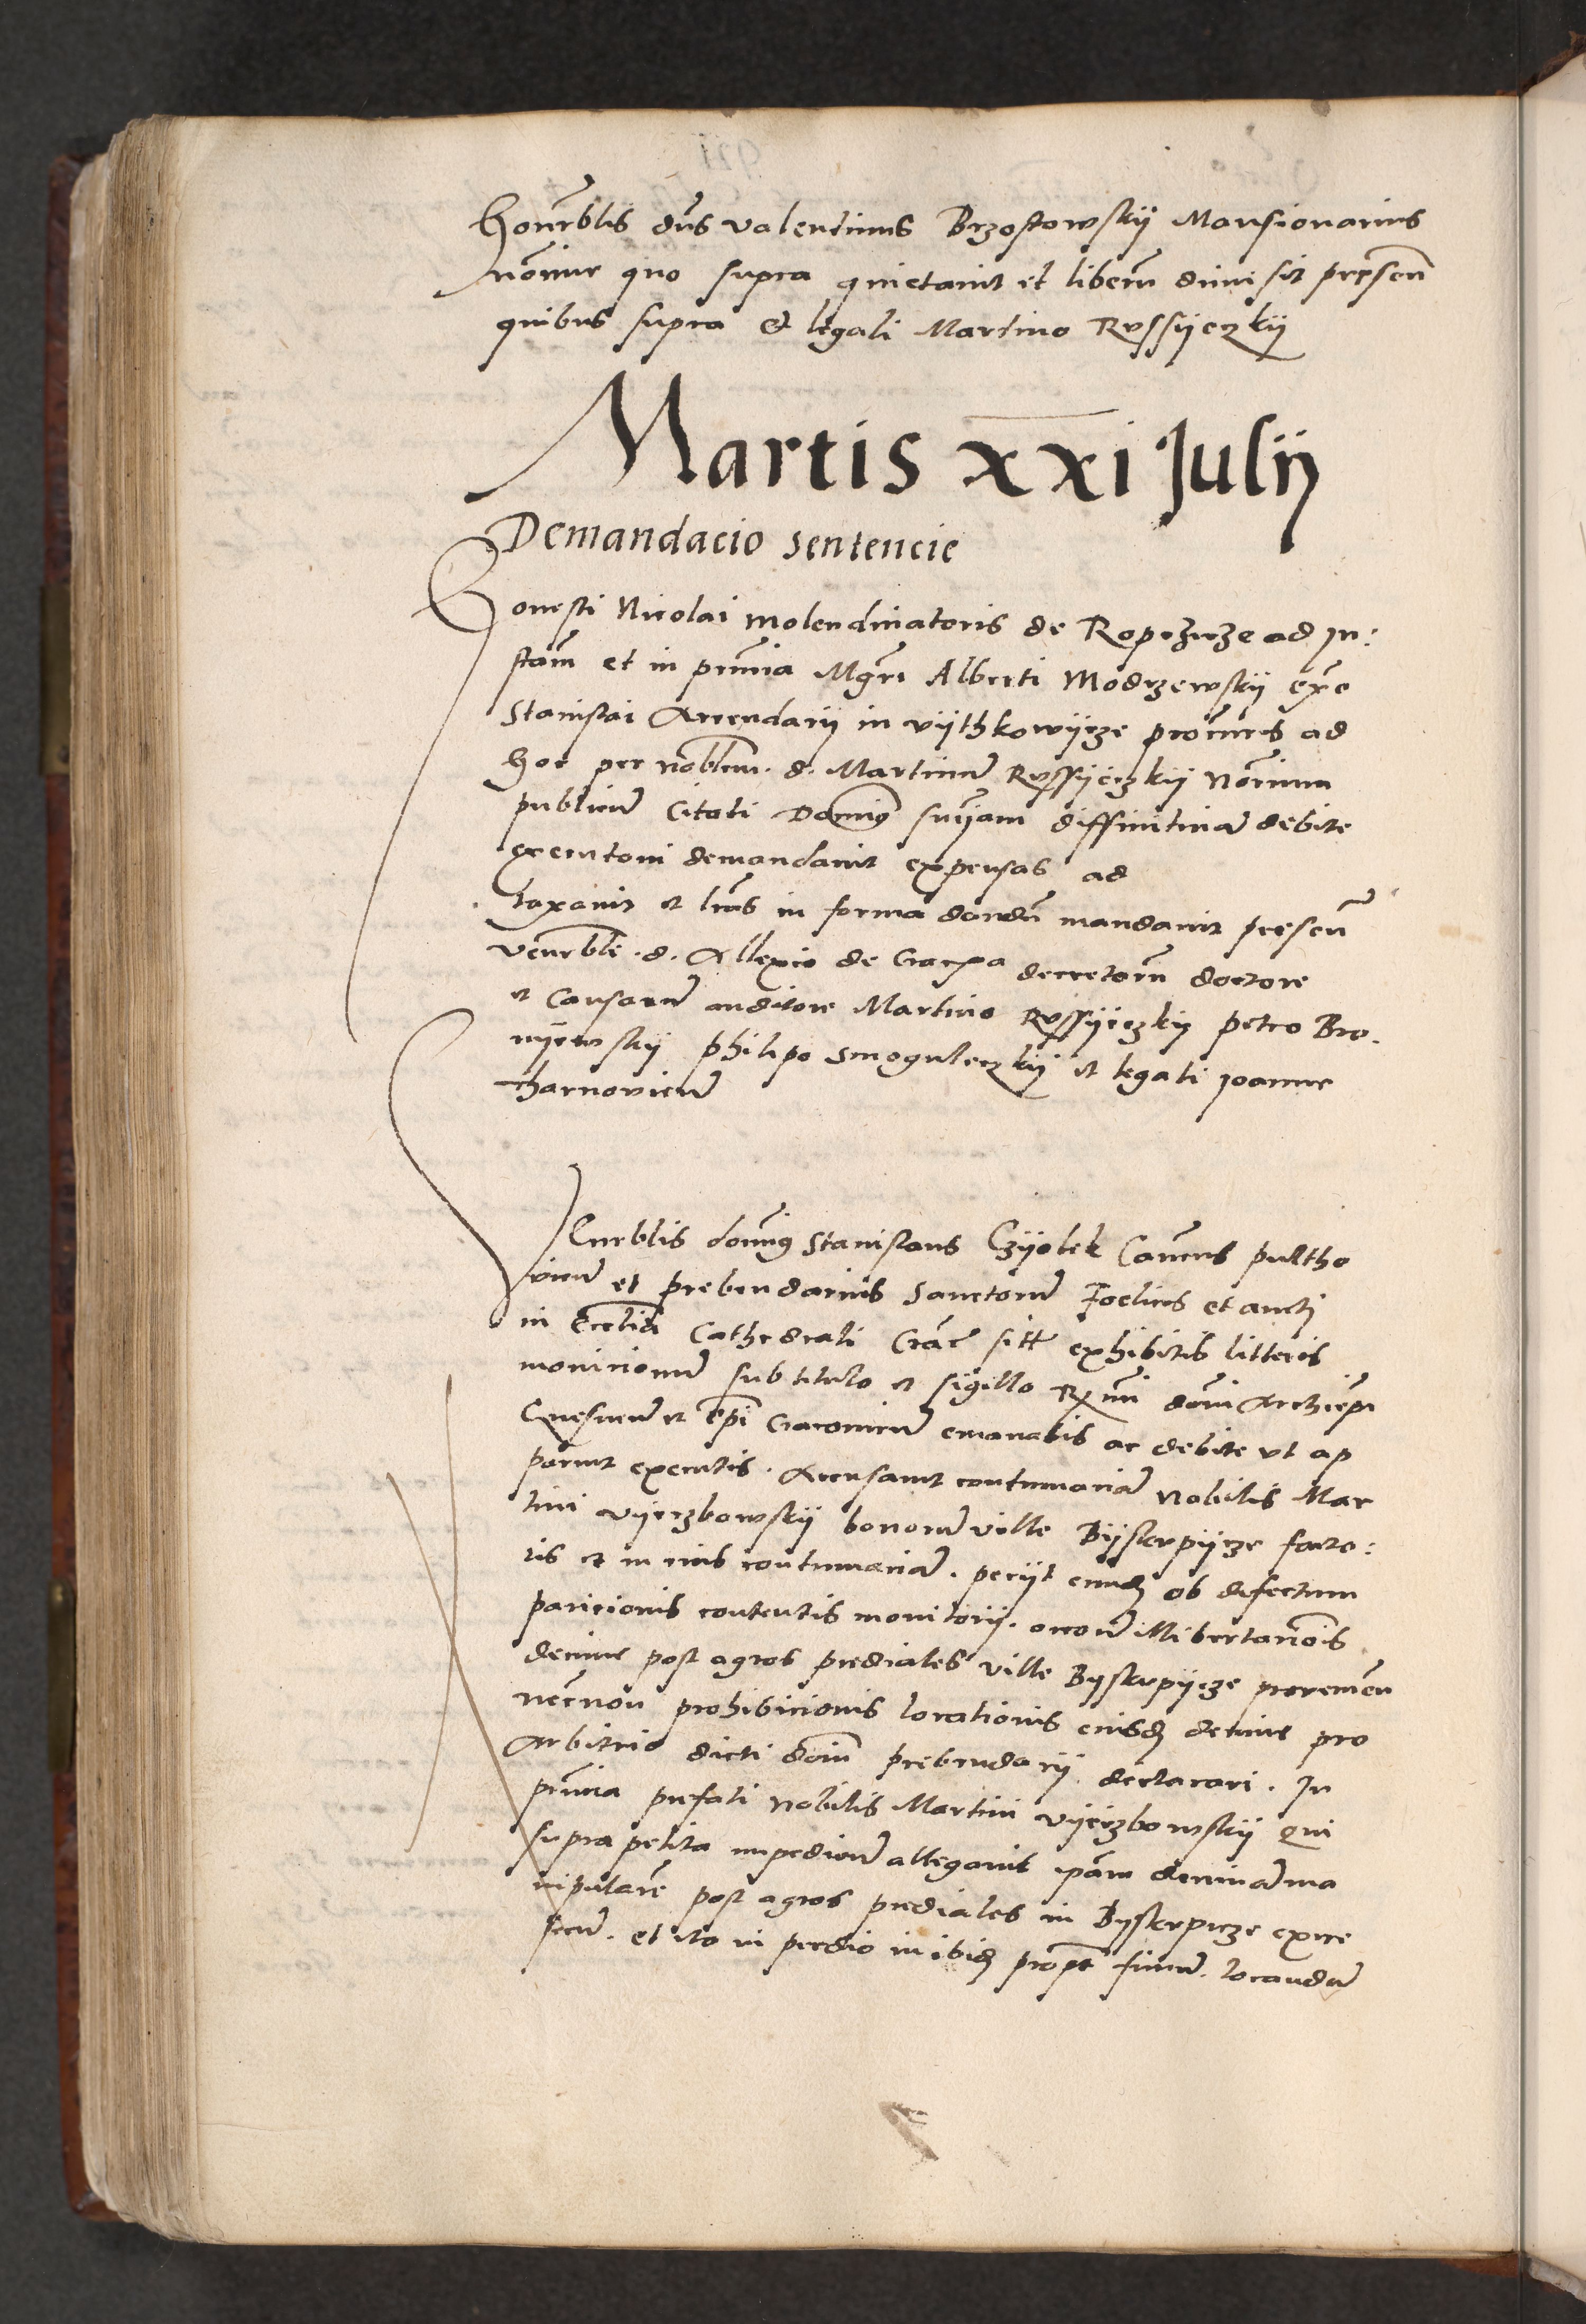 honorblis dns valentinus Brzostowskij Mansionarius
nomine quo supra quietavit et liberm dimisit presen
quibus supra et legali Martino Russijeczkij
Martis xxi Julij
Demandacio sentencie
Honesti Nicolai molendinatoris de Ropczicze ad In:
stam et in pnncia Mgri Alberti Modrzewskij ex
Stanislai Arrendarij in vijthkowijcze procuris ad
hoc per noblem. d. Martinum Russijeczkij Notarium
publicum Citati Dominus snijam diffinitivam debite
executoni demandavit expensas ad
taxavit et lras in forma dandum mandavit presen
venrbli . d. Allexio de Cracovia decretorum doctore
et Causarum auditore Martino Russijeczkij petro Bro.
nijewskij philipo Smoguleczkij et legali Joanne
tharnovicen
Venrblis dominus Stanislaus Czijolek Canonicus pultho
vicen et prebendarius Sanctorum Foelicis et aucti
in Ecclia Cathedrali Crac sitt exhibitis litteris
monicionum sub titulo et sigillo Rmi domi Archiepi
Gnesnen et Epi Cracovicen emanatis ac debite ut ap
paruit executis . Accusavit contumaciam nobilis Mar
tini vijerzbowskij bonorum ville Bijskupijcze facto:
ris et in eius contumaciam . peciijt eundem ob defectum
paricionis contentis monitorij .
decime post agros prediales ville Byskupijcze prenomen
necnon prohibicionis locationis eiusdem decime pro
Arbitrio dicti domini prebendarij declarari . In
pnncia prefati nobilis Martini vijerzbowskij qui
supra petita impediendum allegavit ipsam decimam ma
nipularem post agros prediales in Byskupicze exire
secum . et ita in predio inibidem propter fimum . locandum